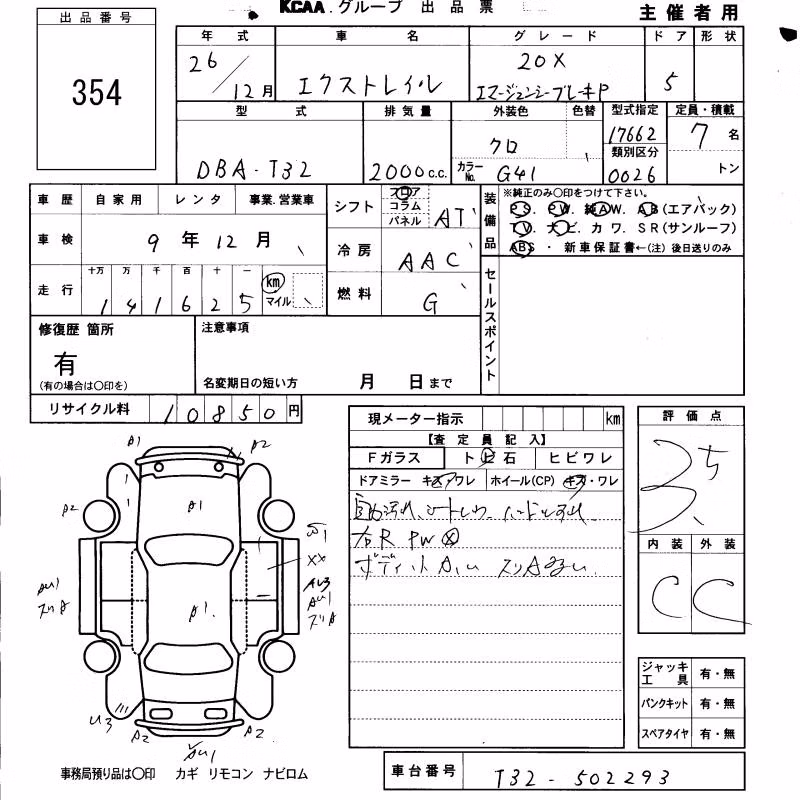 KCAA.グループ 出品票
主催者用
出品番号
354
年式 車名 グレード ドア 形状
26/12月 エクストレイル 20X 5
エマージェンシーブレーキP
型式 排気量 外装色 色替 型式指定 定員・積載
DBA-T32 2000c.c. クロ 17662 7名
類別区分
カラーNo. G41 0026 トン
車歴 自家用 レンタ 事業.営業車
車検 9年12月
走行 十万 万 千 百 十 一
141625 km マイル
シフト フロア コラム パネル AT
冷房 AAC
燃料 G
装備品 ※純正のみ○印をつけて下さい。
PS. PW. 純AW. AB(エアバック)
TV. ナビ. カワ. SR(サンルーフ)
ABS・新車保証書←(注)後日送りのみ
セールスポイント
修復歴 箇所
有
(有の場合は○印を)
注意事項
名変期日の短い方 月 日まで
リサイクル料 10850円
現メーター指示 km
【査定員記入】
Fガラス トビ石 ヒビワレ
ドアミラー キズ・ワレ ホイール(CP) キズ・ワレ
右R PW
評価点
3.5
内装 外装
C C
ジャッキ工具 有・無
パンクキット 有・無
スペアタイヤ 有・無
A1 A2
A1
A2
XX
A1
U3 A2 A2
事務局預り品は○印 カギ リモコン ナビロム
車台番号 T32-502293